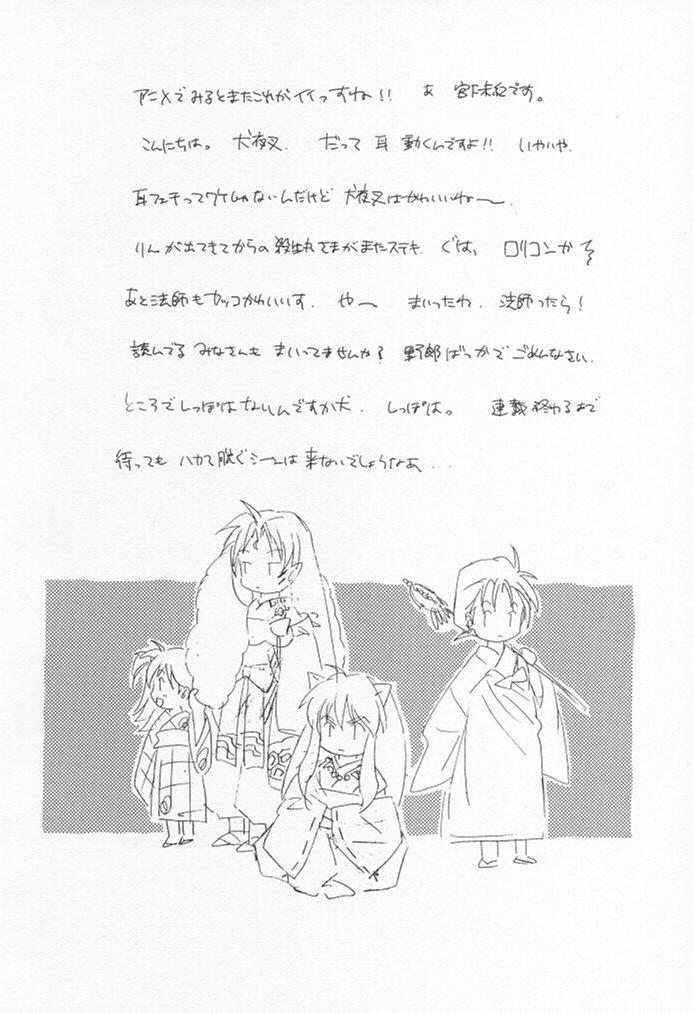 アニメでみるとまたこれがイイっすね!! あ 宮下未紀です。
こんにちは。 犬夜叉. だって 耳 動くんですよ!! いやいや.
耳フェチってワケじゃないんだけど 犬夜叉はかわいいねー.
りんが出てきてからの殺生丸さまがまたステキ. ぐはっ ロリコンかも
あと法師もカッコかわいいす. やー まいったわ. 法師ったら!
読んでるみなさんも まいってませんか? 野郎ばっかでごめんなさい.
ところでしっぽはないんですか犬. しっぽは。 連載終わるまで
待っても ハカマ脱ぐシーンは来ないでしょうなあ...